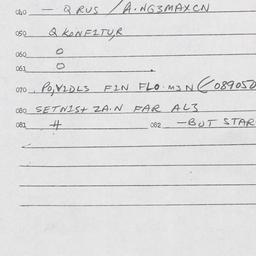 040 — Q RUS / A.NG3MAXCN
050 Q KONFITUR
060 O
061 O
070 PO,VIDLS FIN FLO.M3N (089050
080 SETNIST ZA.N FAR AL3
081 # 082 —BUT STAR